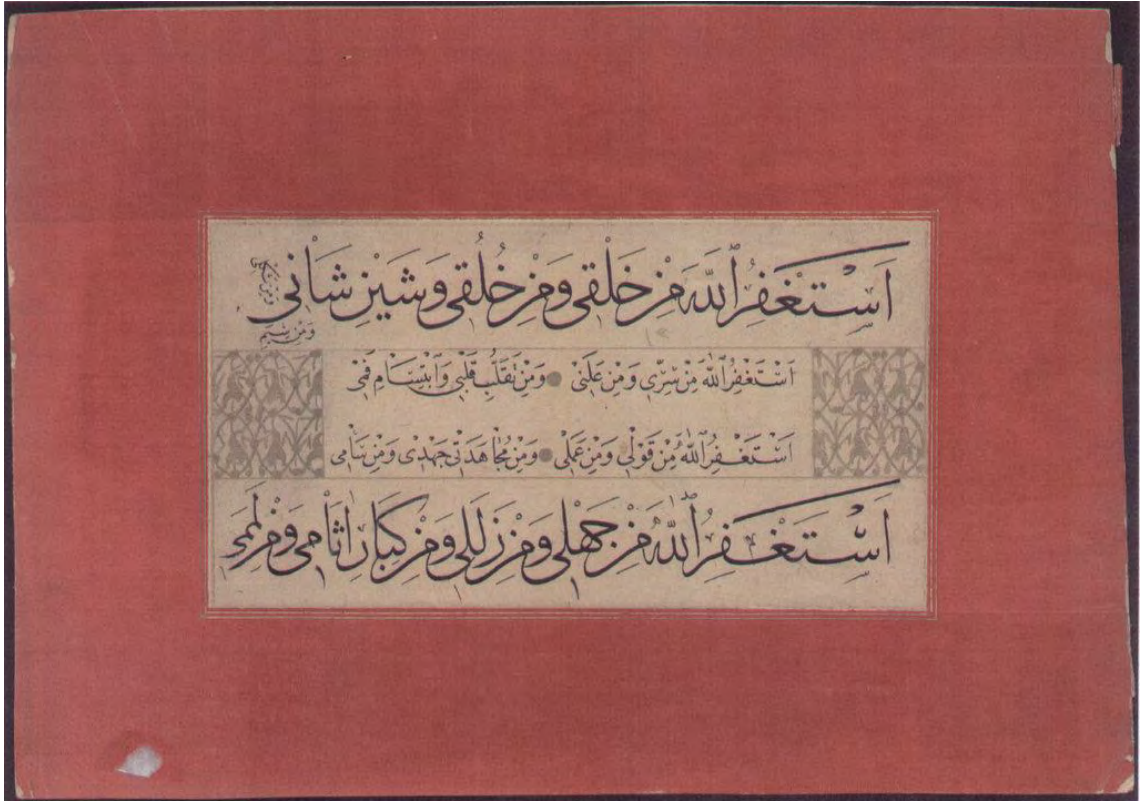 اَسْتَغْفِرُ ٱللّٰهَ مِنْ خَلْقِى وَمِنْ خُلُقِى وَشَيْنِ شَانِى
وَمِنْ شِيَمِ
اَسْتَغْفِرُ ٱللّٰهَ مِنْ سِرِّى وَمِنْ عَلَنِى وَمِنْ تَقَلُّبِ قَلْبِى وَٱبْتِسَامِ فَمِى
اَسْتَغْفِرُ ٱللّٰهَ مِنْ قَوْلِى وَمِنْ عَمَلِى وَمِنْ مُجَاهَدَتِى جَهْدِى وَمِنْ
اَسْتَغْفِرُ ٱللّٰهَ مِنْ جَهْلِى وَمِنْ زَلَلِى وَمِنْ كَبَائِرِ اٰثَامِى وَمِنْ لَمَمِى